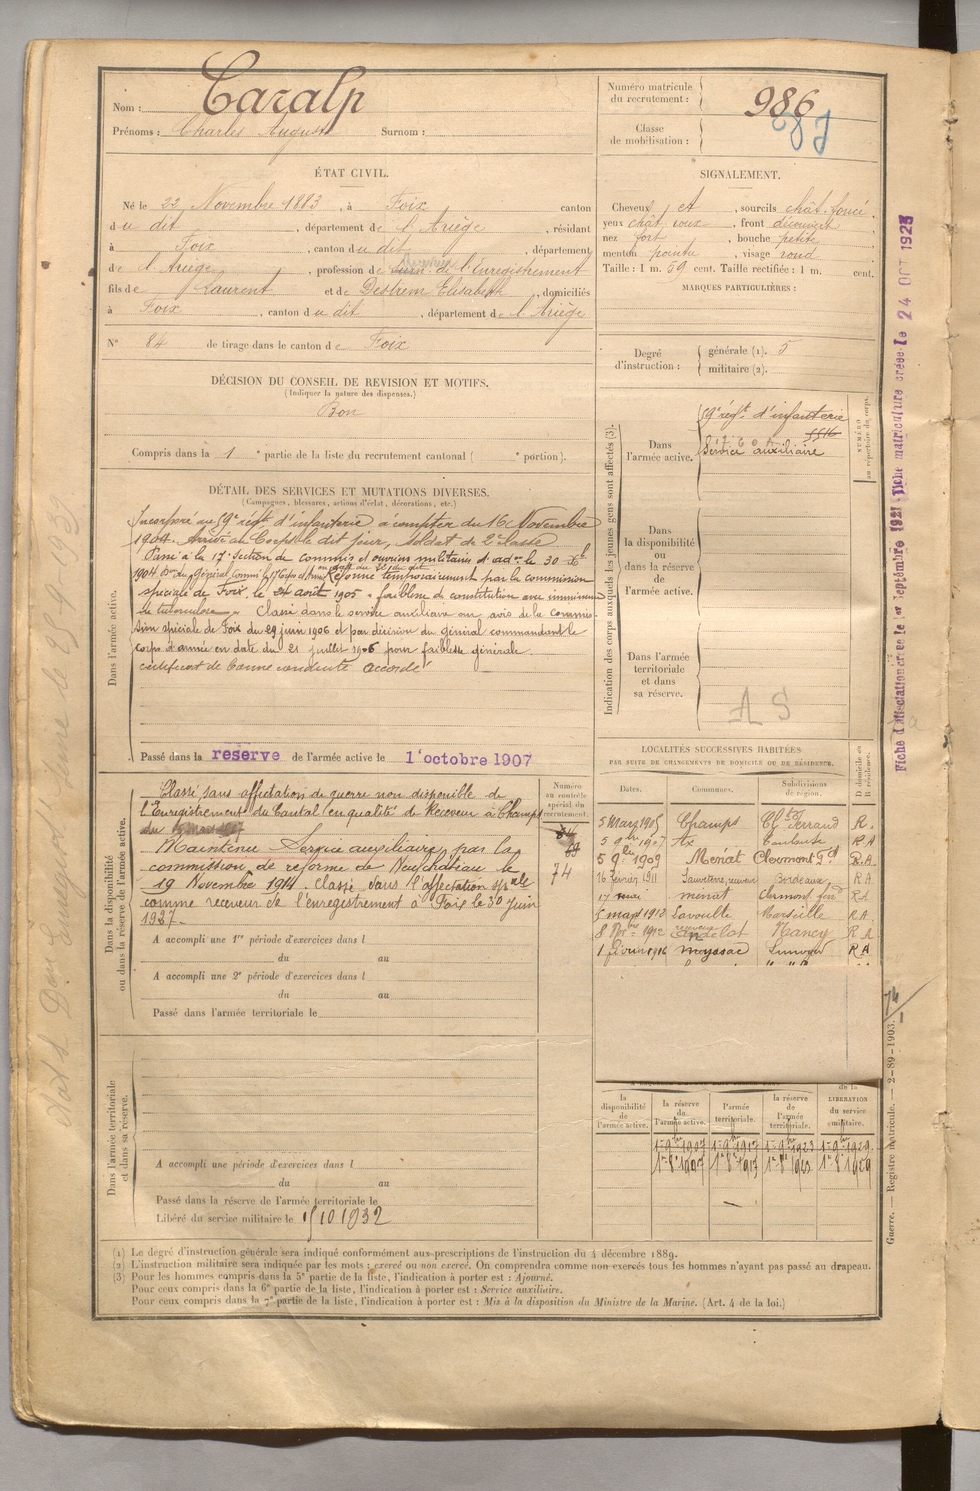 Nom : Caralp
Prénoms : Charles Auguste Surnom :
Numéro matricule du recrutement : 986
Classe de mobilisation :
ÉTAT CIVIL.
Né le 22 Novembre 1883, à Foix canton
du dit, département de l'Ariège, résidant
à Foix, canton du dit, département
de l'Ariège, profession de de l'Enregistrement
fils de Laurent et de Destrem Elisabeth, domiciliés
à Foix, canton du dit, département de l'Ariège
N° 84 de tirage dans le canton de Foix
SIGNALEMENT.
Cheveux et, sourcils chât. foncé
yeux chât. roux, front découvert
nez fort, bouche petite
menton pointu, visage rond
Taille : 1 m. 59 cent. Taille rectifiée : 1 m. cent.
MARQUES PARTICULIÈRES :
Degré d'instruction : générale (1). 3
militaire (2).
DÉCISION DU CONSEIL DE REVISION ET MOTIFS.
(Indiquer la nature des dispenses.)
Bon
Compris dans la 1e partie de la liste du recrutement cantonal ( e portion).
DÉTAIL DES SERVICES ET MUTATIONS DIVERSES.
(Campagnes, blessures, actions d'éclat, décorations, etc.)
Dans l'armée active.
Incorporé au 59e régt d'infanterie à compter du 16 Novembre
1904. Arrivé au Corps le dit jour, soldat de 2e classe
Passé à la 17e section de commis et ouvriers militaires d'admon le 30 Xbre
1904 Réformé temporairement par la commission
spéciale de Foix, le 24 août 1905 faiblesse de constitution avec imminence
de tuberculose. Classé dans le service auxiliaire sur avis de la commis-
sion spéciale de Foix du 29 juin 1906 et par décision du général commandant le
corps d'armée en date du 21 juillet 1906 pour faiblesse générale
certificat de bonne conduite accordé
Passé dans la reserve de l'armée active le 1er octobre 1907
Indication des corps auxquels les jeunes gens sont affectés (3).
NUMÉRO au répertoire du corps.
Dans l'armée active.
59e régt d'infanterie
Service auxiliaire
Dans la disponibilité ou dans la réserve de l'armée active.
Dans l'armée territoriale et dans sa réserve.
A S
Dans la disponibilité ou dans la réserve de l'armée active.
Numéro au contrôle spécial du recrutement.
74
Classé sans affectation de guerre non disponible de
l'Enregistrement du Cantal en qualité de Receveur à Champs
du
Maintenu Service auxiliaire par la
commission de réforme de Neufchâteau le
19 Novembre 1914. Classé dans l'affectation spéciale
comme receveur de l'enregistrement à Foix le 30 Juin
1927.
A accompli une 1re période d'exercices dans l
du au
A accompli une 2e période d'exercices dans l
du au
Passé dans l'armée territoriale le
LOCALITÉS SUCCESSIVES HABITÉES
PAR SUITE DE CHANGEMENTS DE DOMICILE OU DE RÉSIDENCE.
Dates. Communes. Subdivisions de région. D domicile ou R résidence.
5 Mars 1905 Champs Clt Ferrand R.
5 9bre 1907 Ax Toulouse R A
5 9bre 1909 Ménat Clermont Fd R.A.
16 février 1911 Sauveterre, receveur Bordeaux R A
17 mai ménat Clermont fd R A
5 mars 1912 Lavoulte Marseille R A
8 9bre 1912 Andelot Nancy R A
1 février 1916 Meyssac Limoges R A
la disponibilité de l'armée active. la réserve de l'armée active. l'armée territoriale. la réserve de l'armée territoriale. de la LIBÉRATION du service militaire.
Dans l'armée territoriale et dans sa réserve.
A accompli une période d'exercices dans l
du au
Passé dans la réserve de l'armée territoriale le
Libéré du service militaire le 15 10 1932
(1) Le degré d'instruction générale sera indiqué conformément aux prescriptions de l'instruction du 4 décembre 1889.
(2) L'instruction militaire sera indiquée par les mots : exercé ou non exercé. On comprendra comme non exercés tous les hommes n'ayant pas passé au drapeau.
(3) Pour les hommes compris dans la 5e partie de la liste, l'indication à porter est : Ajourné.
Pour ceux compris dans la 6e partie de la liste, l'indication à porter est : Service auxiliaire.
Pour ceux compris dans la 7e partie de la liste, l'indication à porter est : Mis à la disposition du Ministre de la Marine. (Art. 4 de la loi.)
Fiche d'affectation créée le 1er Septembre 1921 - Fiche matriculaire créée le 24 OCT 1925
Guerre. — Registre matricule. — 2-89-1903.